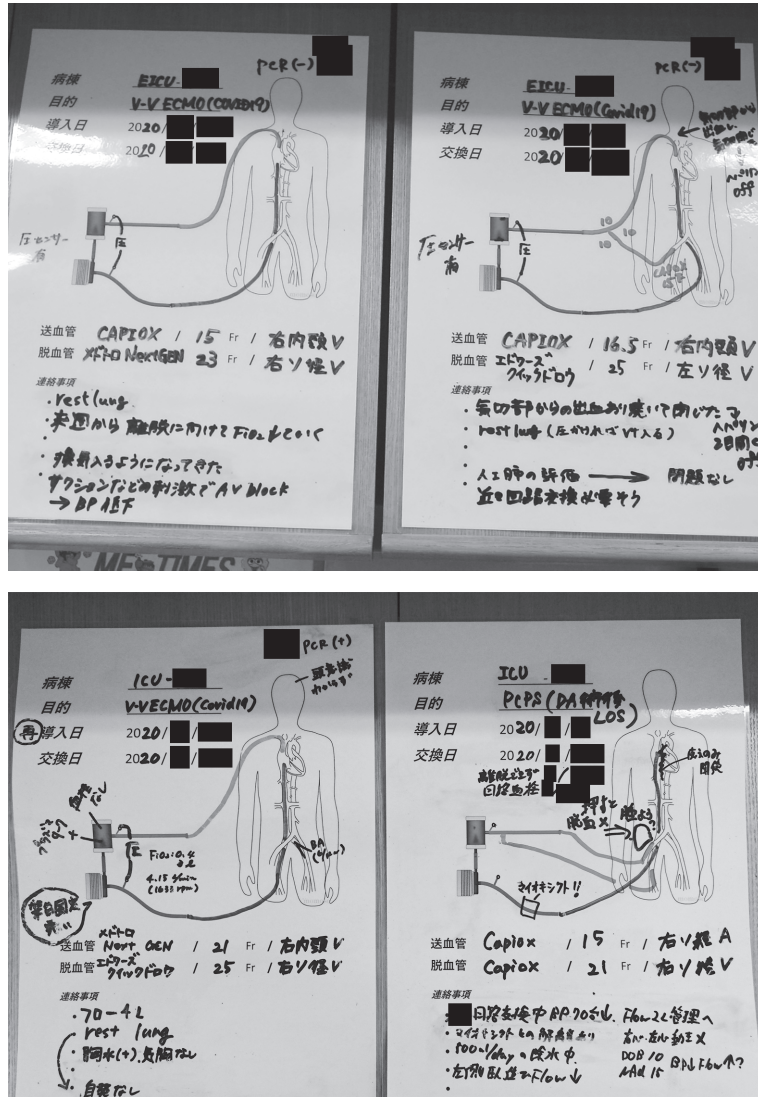 PCR(-)
病棟 EICU-
目的 V-V ECMO(COVID19)
導入日 2020/ /
交換日 2020/ /
圧センサー
有
圧
送血管 CAPIOX / 15 Fr / 右内頸V
脱血管 メドトロNextGEN 23 Fr / 右ソ径V
連絡事項
・rest lung
・来週から離脱に向けてFiO₂↓ていく
・換気入るようになってきた
・サクションなどの刺激でAV block
→ BP低下
ME TIMES
PCR(-)
病棟 EICU-
目的 V-V ECMO(Covid19)
導入日 2020/ /
交換日 2020/ /
off
圧センサー
有
圧
10
10
10
CAPIOX
送血管 CAPIOX / 16.5 Fr / 右内頸V
脱血管 エドワーズ
クイックドロウ / 25 Fr / 左ソ径V
連絡事項
・気切部からの出血あり焼いて閉じた
ヘパリン
2日間
off
・rest lung(圧かければVT入る)
・人工肺の評価 → 問題なし
・近々回路交換必要そう
PCR(+)
病棟 ICU-
目的 V-VECMO(Covid19)
再 導入日 2020/ /
交換日 2020/ /
圧
FiO₂:0.4
4.15 L/min
(1633rpm)
送血管 メドトロ
Next GEN / 21 Fr / 右内頸V
脱血管 エドワーズ
クイックドロウ / 25 Fr / 右ソ径V
連絡事項
・フロー4L
rest lung
・胸水(+),気胸なし
・自発なし
病棟 ICU -
目的 PCPS(
LOS)
導入日 2020/ /
交換日 2020/ /
離脱できず
回路血栓
押すと
脱血×
サイオキシフト!!
送血管 Capiox / 15 Fr / 右ソ径A
脱血管 Capiox / 21 Fr / 右ソ径V
連絡事項
回路交換中BP70台↓. Flow2L管理へ
・500ml/dayの除水中.
・左側臥位でFlow↓
DOB 10
NAd 15
BP↓Flow↑?